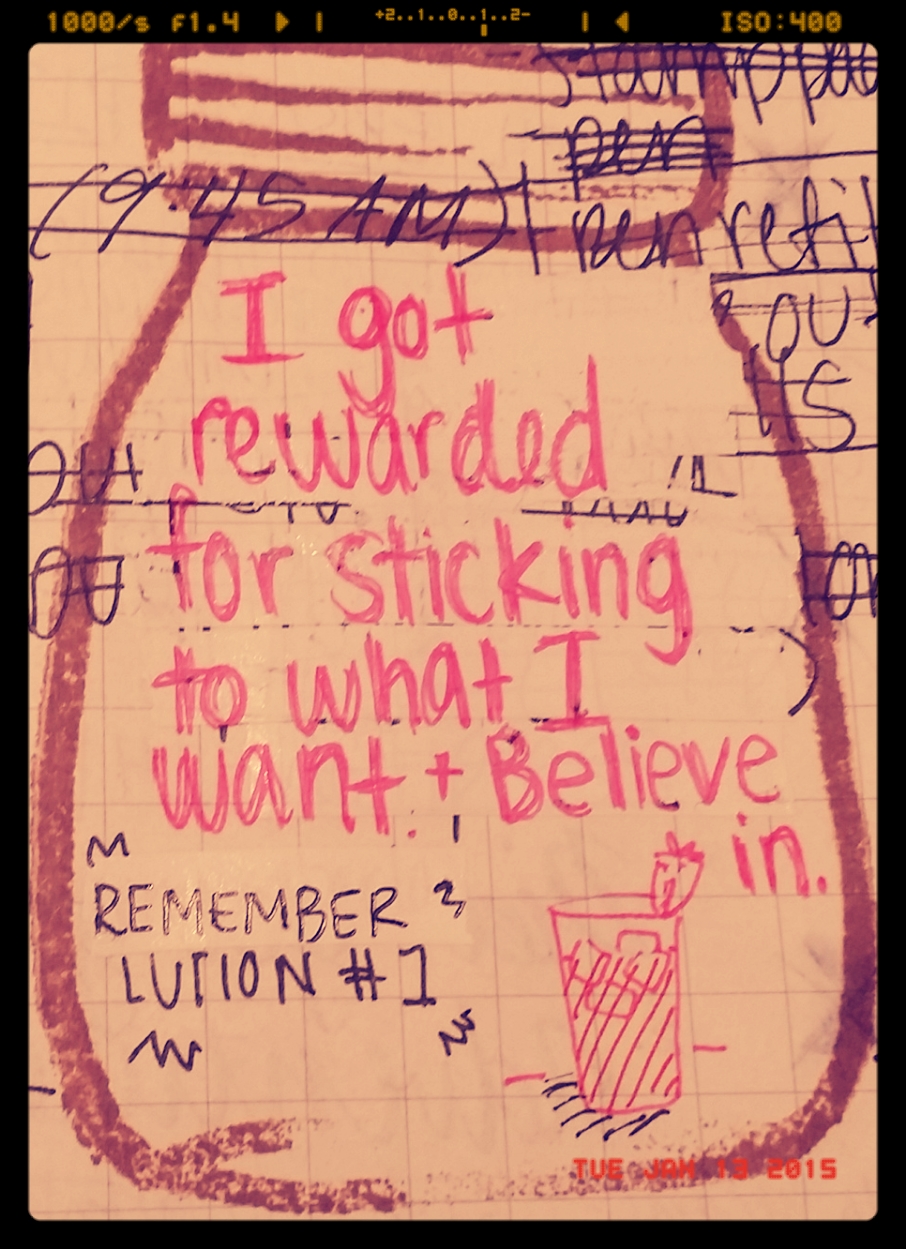 1000/s f1.4 +2..1..0..1..2- ISO:400
pen
(9:45 AM) pen refil
I got
rewarded
for sticking
to what I
want + Believe
in.
REMEMBER
LUTION #1
TUE JAN 13 2015